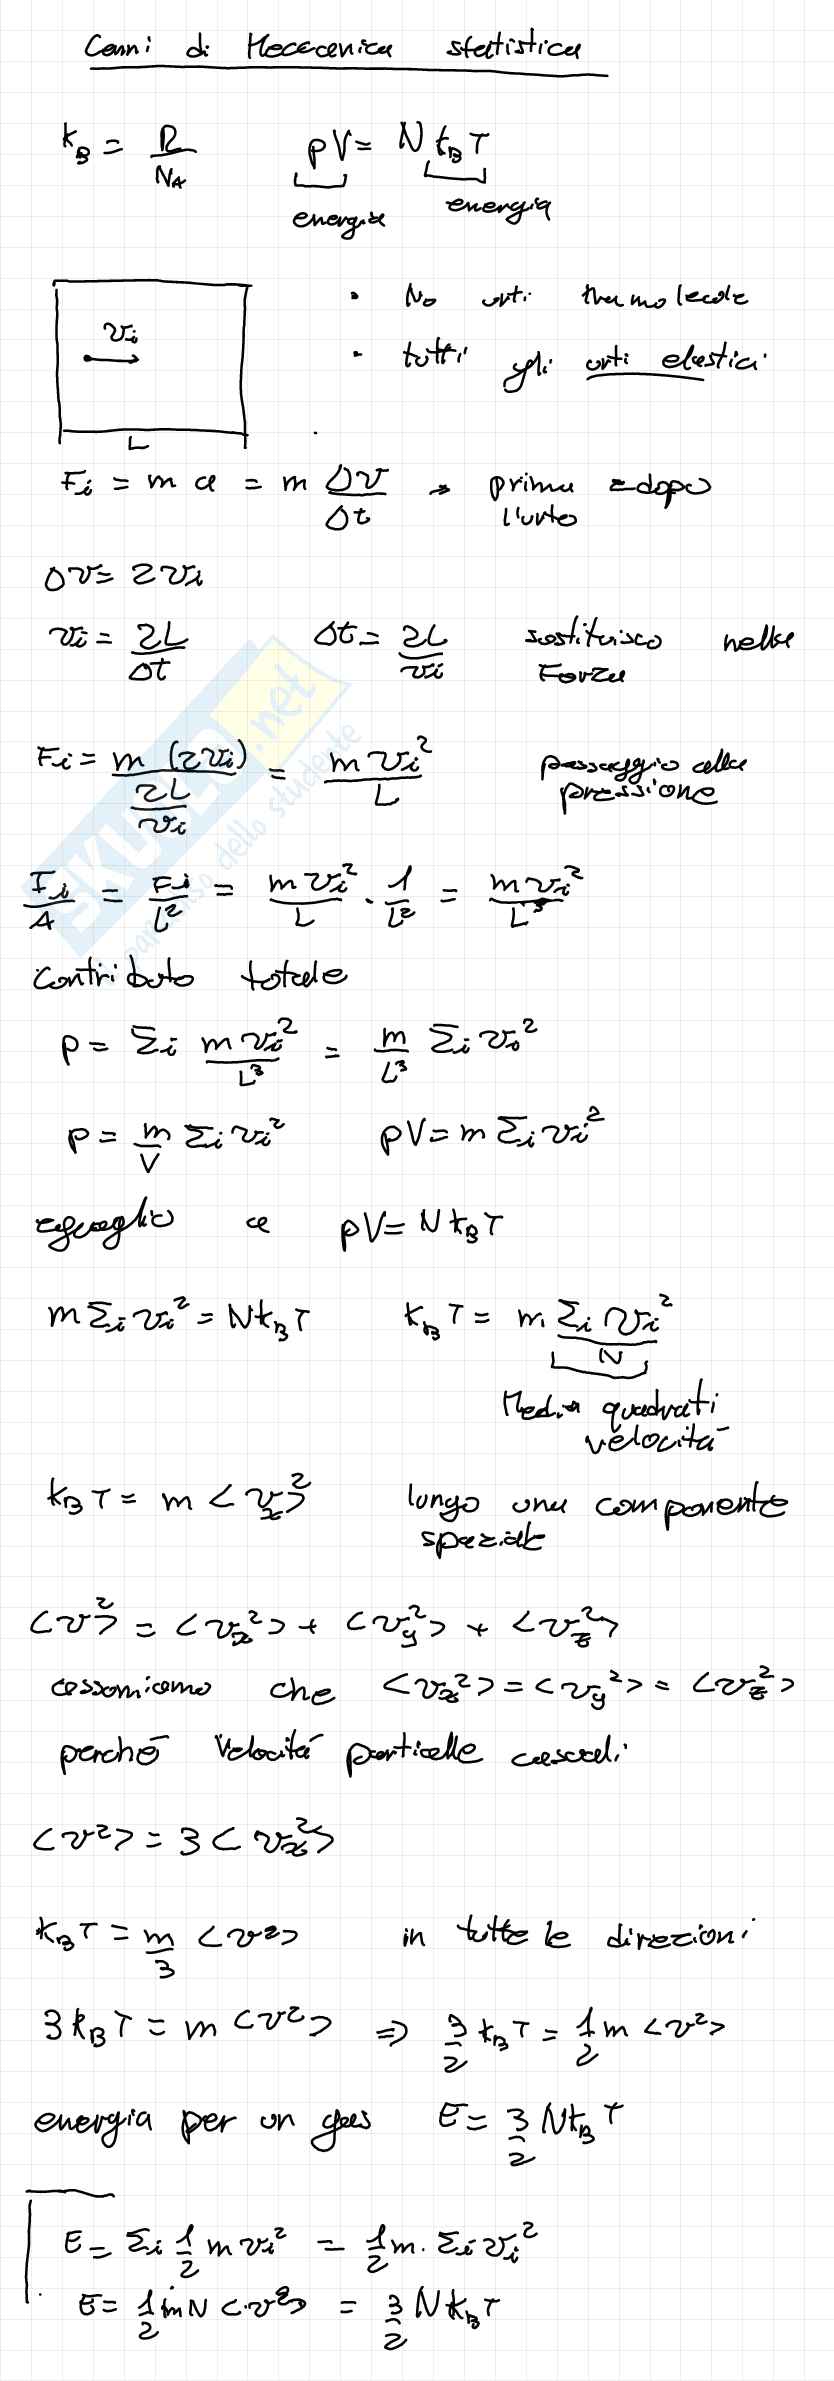 Cenni di Meccanica statistica
k_B = R/N_A    pV = N k_B T
energia    energia
v_i
L
• No urti tra molecole
• tutti gli urti elastici
F_i = m a = m Δv/Δt → prima e dopo l'urto
Δv = 2v_i
v_i = 2L/Δt    Δt = 2L/v_i    sostituisco nella Forza
F_i = m (2v_i)/(2L/v_i) = m v_i²/L    passaggio alla pressione
F_i/A = F_i/L² = m v_i²/L · 1/L² = m v_i²/L³
contributo totale
p = Σi m v_i²/L³ = m/L³ Σi v_i²
p = m/V Σi v_i²    pV = m Σi v_i²
eguaglio a pV = N k_B T
m Σi v_i² = N k_B T    k_B T = m Σi v_i²/N
Media quadrati velocità
k_B T = m <v_x²>    lungo una componente spaziale
<v²> = <v_x²> + <v_y²> + <v_z²>
assumiamo che <v_x²> = <v_y²> = <v_z²>
perché velocità particelle casuali
<v²> = 3 <v_x²>
k_B T = m/3 <v²>    in tutte le direzioni
3 k_B T = m <v²> ⇒ 3/2 k_B T = 1/2 m <v²>
energia per un gas    E = 3/2 N k_B T
E = Σi 1/2 m v_i² = 1/2 m · Σi v_i²
E = 1/2 m N <v²> = 3/2 N k_B T
SKUOLA.net
paradiso dello studente